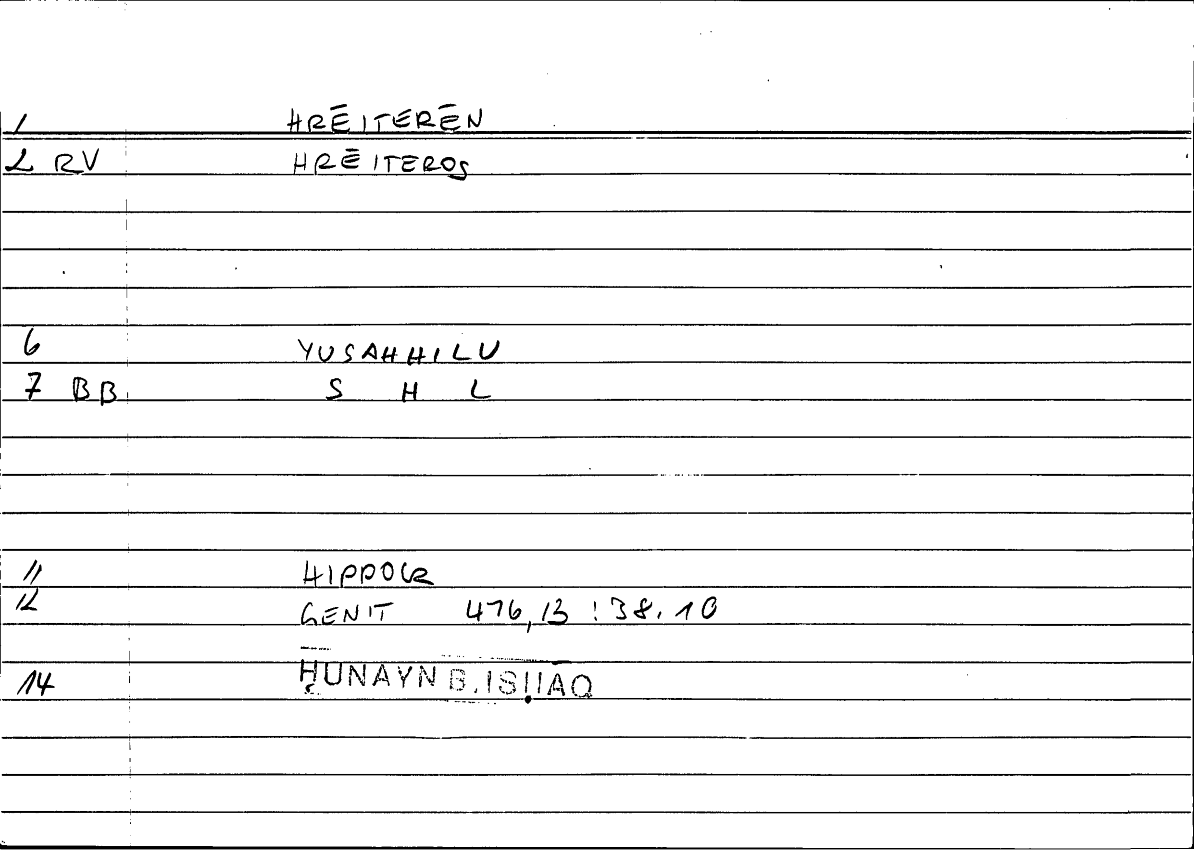 1 HRĒITERĒN
2 RV HRĒITEROS
6 YUSAHHILU
7 BB S H L
11 HIPPOCR
12 GENIT 476,13 : 38.10
14 ḤUNAYN B.ISḤAQ